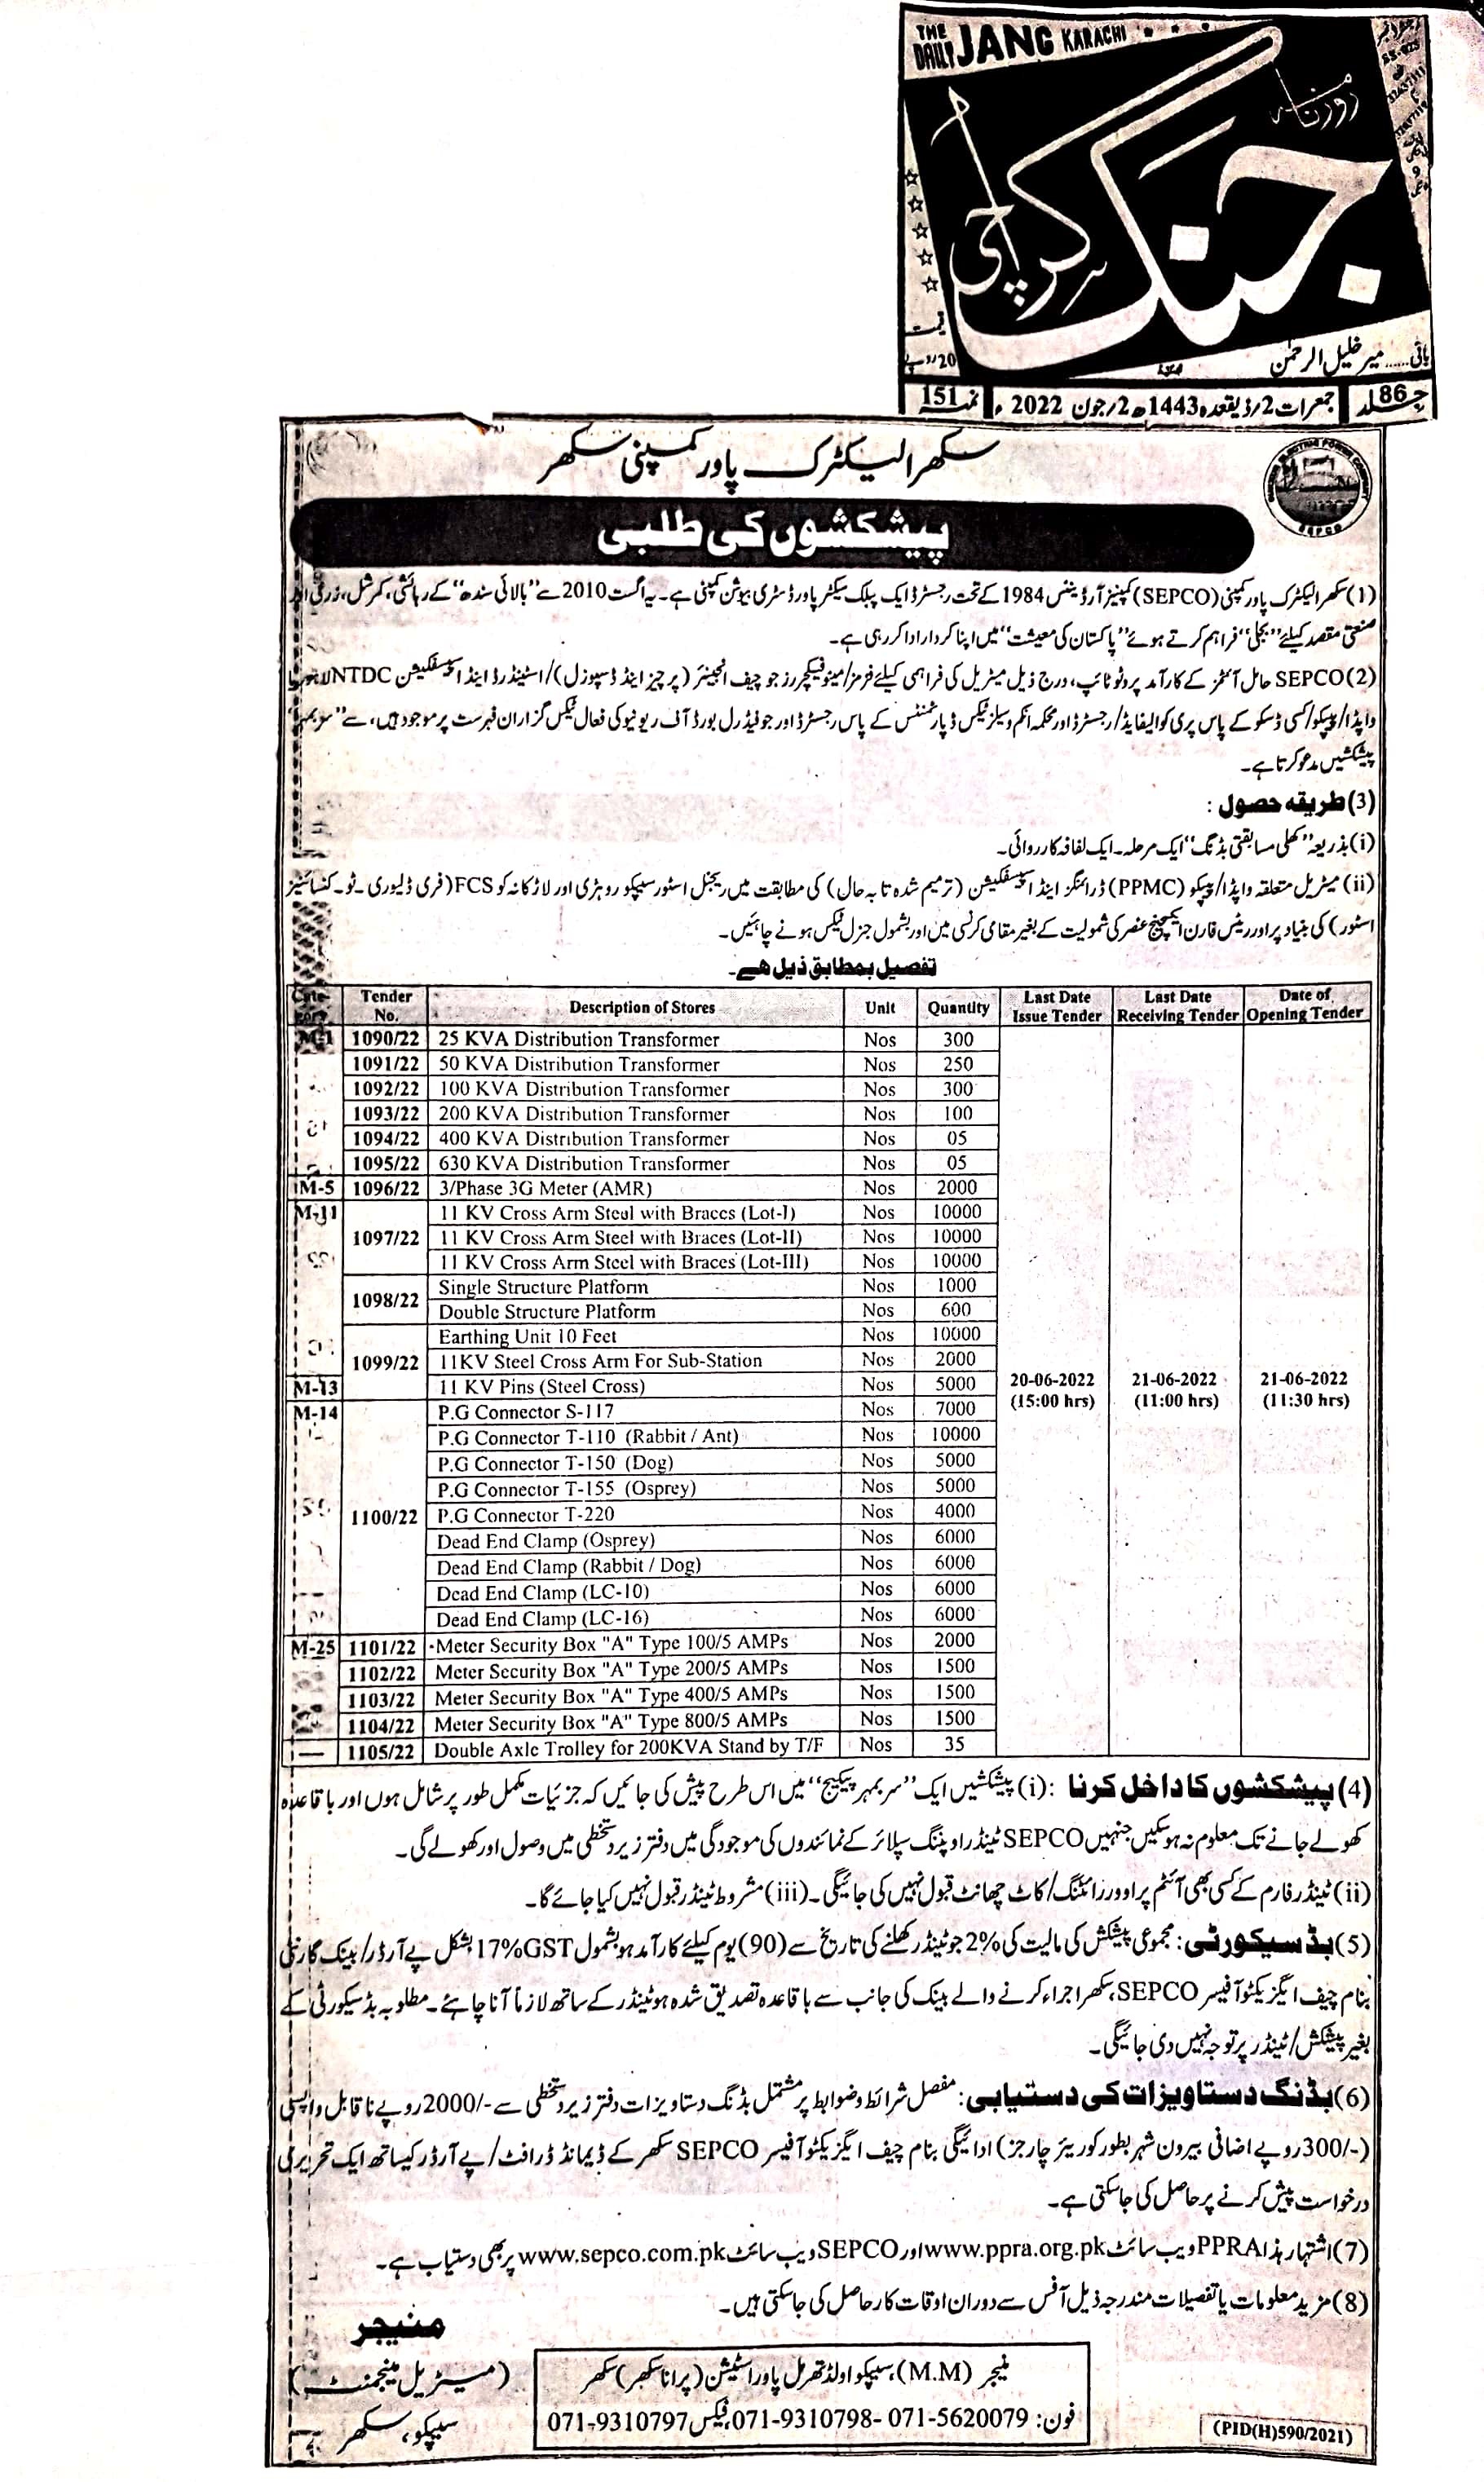 THE DAILY JANG KARACHI
روزنامہ
جنگ کراچی
بانی......میر خلیل الرحمٰن
قیمت
20 روپے
جلد 86 جمعرات 2/ذیقعدہ 1443ھ 2/جون 2022ء نمبر 151
سکھر الیکٹرک پاور کمپنی سکھر
SEPCO
پیشکشوں کی طلبی
(1) سکھر الیکٹرک پاور کمپنی (SEPCO) کمپنیز آرڈیننس 1984 کے تحت رجسٹرڈ ایک پبلک سیکٹر پاور ڈسٹری بیوشن کمپنی ہے۔ یہ اگست 2010 سے "بالائی سندھ" کے رہائشی، کمرشل، زرعی اور
صنعتی مقصد کیلئے "بجلی" فراہم کرتے ہوئے "پاکستان کی معیشت" میں اپنا کردار ادا کر رہی ہے۔
(2) SEPCO حامل آئٹمز کے کارآمد پروٹوٹائپ، درج ذیل میٹریل کی فراہمی کیلئے فرمز/مینوفیکچررز جو چیف انجینئر (پرچیز اینڈ ڈسپوزل)/اسٹینڈرڈ اینڈ اسپیسفکیشن NTDC لاہور یا
واپڈا/پیپکو/کسی ڈسکو کے پاس پری کوالیفائیڈ/رجسٹرڈ اور محکمہ انکم و سیلز ٹیکس ڈپارٹمنٹس کے پاس رجسٹرڈ اور جو فیڈرل بورڈ آف ریونیو کی فعال ٹیکس گزاران فہرست پر موجود ہیں، سے "سربمہر"
پیشکشیں مدعو کرتا ہے۔
(3) طریقہ حصول :
(i) بذریعہ "کھلی مسابقتی بڈنگ" ایک مرحلہ۔ ایک لفافہ کارروائی۔
(ii) میٹریل متعلقہ واپڈا/پیپکو (PPMC) ڈرائنگز اینڈ اسپیسفکیشن (ترمیم شدہ تا بہ حال) کی مطابقت میں ریجنل اسٹور سیپکو روہڑی اور لاڑکانہ کو FCS (فری ڈلیوری۔ ٹو۔ کنسائنیز
اسٹور) کی بنیاد پر اور ریٹس فارن ایکسچینج عنصر کی شمولیت کے بغیر مقامی کرنسی میں اور بشمول جنرل ٹیکس ہونے چاہئیں۔
تفصیل بمطابق ذیل ہے۔
Category Tender No. Description of Stores Unit Quantity Last Date Issue Tender Last Date Receiving Tender Date of Opening Tender
M-1 1090/22 25 KVA Distribution Transformer Nos 300
1091/22 50 KVA Distribution Transformer Nos 250
1092/22 100 KVA Distribution Transformer Nos 300
1093/22 200 KVA Distribution Transformer Nos 100
1094/22 400 KVA Distribution Transformer Nos 05
1095/22 630 KVA Distribution Transformer Nos 05
M-5 1096/22 3/Phase 3G Meter (AMR) Nos 2000
M-11 11 KV Cross Arm Steel with Braces (Lot-I) Nos 10000
1097/22 11 KV Cross Arm Steel with Braces (Lot-II) Nos 10000
11 KV Cross Arm Steel with Braces (Lot-III) Nos 10000
1098/22 Single Structure Platform Nos 1000
Double Structure Platform Nos 600
Earthing Unit 10 Feet Nos 10000
1099/22 11KV Steel Cross Arm For Sub-Station Nos 2000
M-13 11 KV Pins (Steel Cross) Nos 5000 20-06-2022 (15:00 hrs) 21-06-2022 (11:00 hrs) 21-06-2022 (11:30 hrs)
M-14 P.G Connector S-117 Nos 7000
P.G Connector T-110 (Rabbit / Ant) Nos 10000
P.G Connector T-150 (Dog) Nos 5000
P.G Connector T-155 (Osprey) Nos 5000
1100/22 P.G Connector T-220 Nos 4000
Dead End Clamp (Osprey) Nos 6000
Dead End Clamp (Rabbit / Dog) Nos 6000
Dead End Clamp (LC-10) Nos 6000
Dead End Clamp (LC-16) Nos 6000
M-25 1101/22 Meter Security Box "A" Type 100/5 AMPs Nos 2000
1102/22 Meter Security Box "A" Type 200/5 AMPs Nos 1500
1103/22 Meter Security Box "A" Type 400/5 AMPs Nos 1500
1104/22 Meter Security Box "A" Type 800/5 AMPs Nos 1500
— 1105/22 Double Axle Trolley for 200KVA Stand by T/F Nos 35
(4) پیشکشوں کا داخل کرنا : (i) پیشکشیں ایک "سربمہر پیکیج" میں اس طرح پیش کی جائیں کہ جزئیات مکمل طور پر شامل ہوں اور باقاعدہ
کھولے جانے تک معلوم نہ ہو سکیں جنہیں SEPCO ٹینڈر اوپننگ سپلائر کے نمائندوں کی موجودگی میں دفتر زیر دستخطی میں وصول اور کھولے گی۔
(ii) ٹینڈر فارم کے کسی بھی آئٹم پر اوور رائٹنگ/کاٹ چھانٹ قبول نہیں کی جائیگی۔ (iii) مشروط ٹینڈر قبول نہیں کیا جائے گا۔
(5) بڈ سیکورٹی: مجموعی پیشکش کی مالیت کی 2% جو ٹینڈر کھلنے کی تاریخ سے (90) یوم کیلئے کارآمد ہو بشمول 17%GST بشکل پے آرڈر/بینک گارنٹی
بنام چیف ایگزیکٹو آفیسر SEPCO، سکھر اجراء کرنے والے بینک کی جانب سے باقاعدہ تصدیق شدہ ہو ٹینڈر کے ساتھ لازماً آنا چاہئے۔ مطلوبہ بڈ سیکورٹی کے
بغیر پیشکش/ٹینڈر پر توجہ نہیں دی جائیگی۔
(6) بڈنگ دستاویزات کی دستیابی: مفصل شرائط و ضوابط پر مشتمل بڈنگ دستاویزات دفتر زیر دستخطی سے -/2000 روپے ناقابل واپسی
(-/300 روپے اضافی بیرون شہر بطور کوریئر چارجز) ادائیگی بنام چیف ایگزیکٹو آفیسر SEPCO سکھر کے ڈیمانڈ ڈرافٹ/پے آرڈر کیساتھ ایک تحریری
درخواست پیش کرنے پر حاصل کی جا سکتی ہے۔
(7) اشتہار ہذا PPRA ویب سائٹ www.ppra.org.pk اور SEPCO ویب سائٹ www.sepco.com.pk پر بھی دستیاب ہے۔
(8) مزید معلومات یا تفصیلات مندرجہ ذیل آفس سے دوران اوقات کار حاصل کی جا سکتی ہیں۔
منیجر
(میٹریل مینجمنٹ)
سیپکو، سکھر
منیجر (M.M)، سیپکو اولڈ تھرمل پاور اسٹیشن (پرانا سکھر) سکھر
فون: 071-5620079 -071-9310798، فیکس 071-9310797
(PID(H)590/2021)